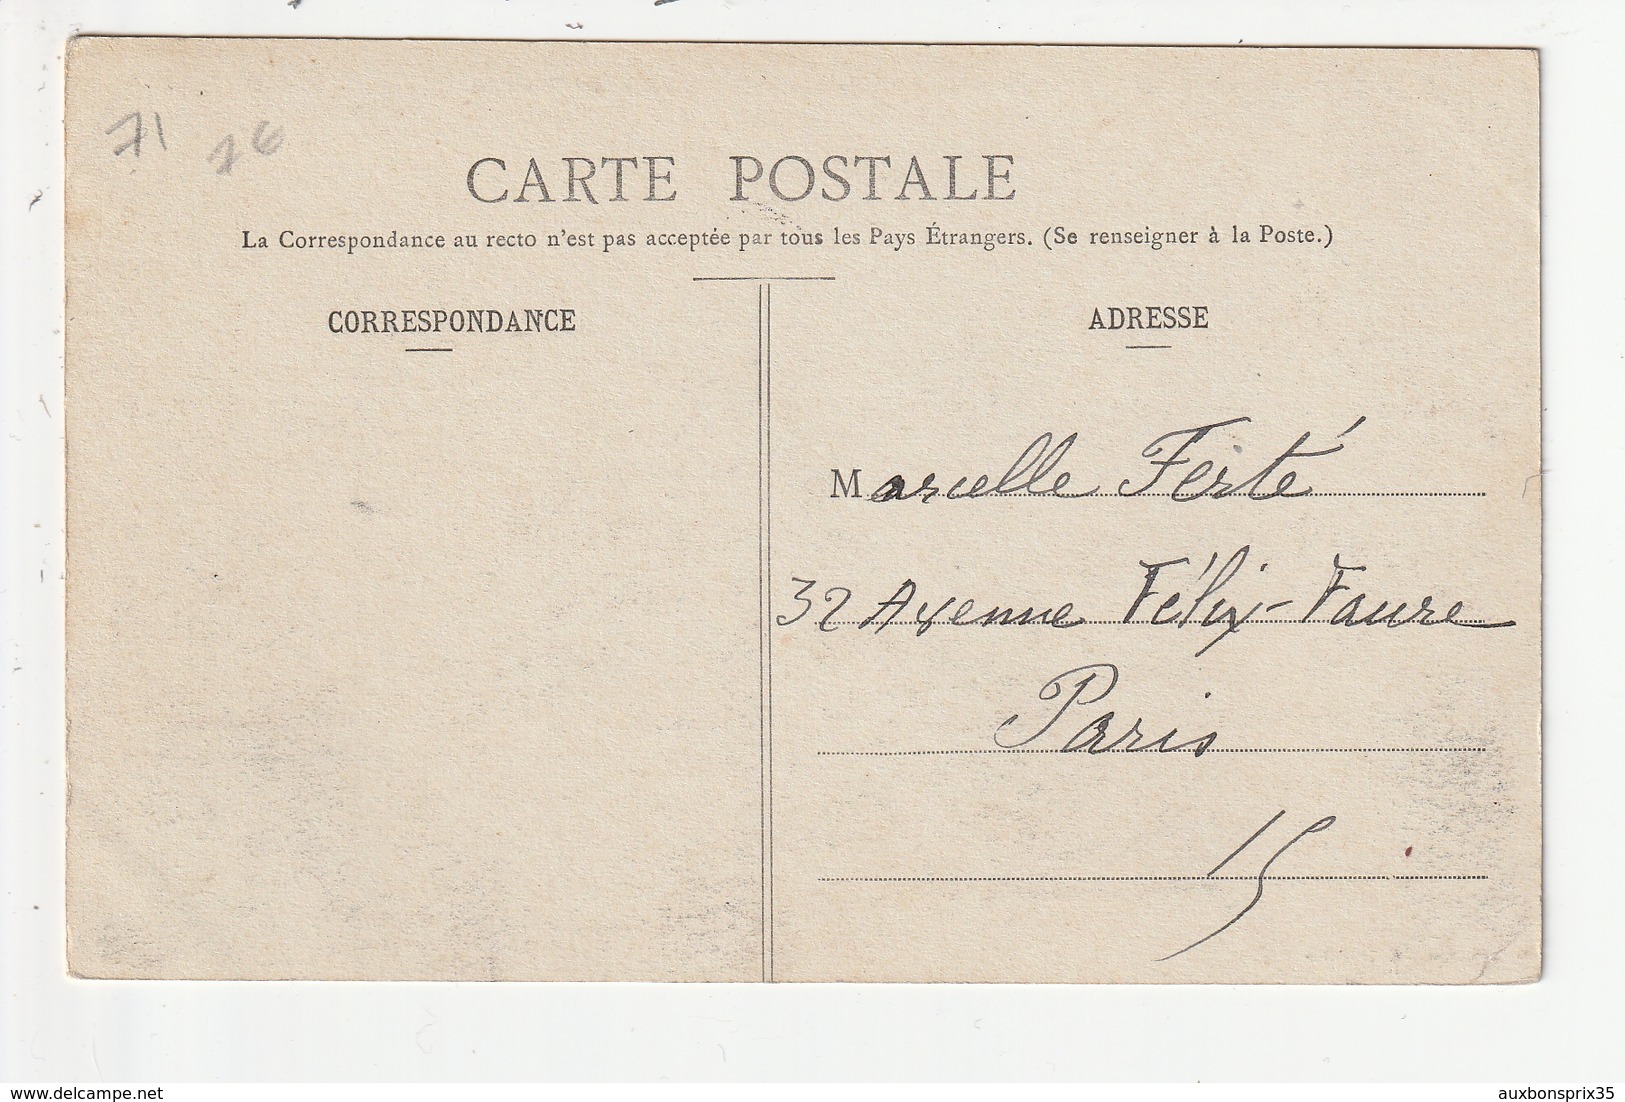 71
1€
CARTE POSTALE
La Correspondance au recto n'est pas acceptée par tous les Pays Étrangers. (Se renseigner à la Poste.)
CORRESPONDANCE
ADRESSE
Marcelle Ferté
32 Avenue Félix-Faure
Paris
15
delcampe.net
auxbonsprix35